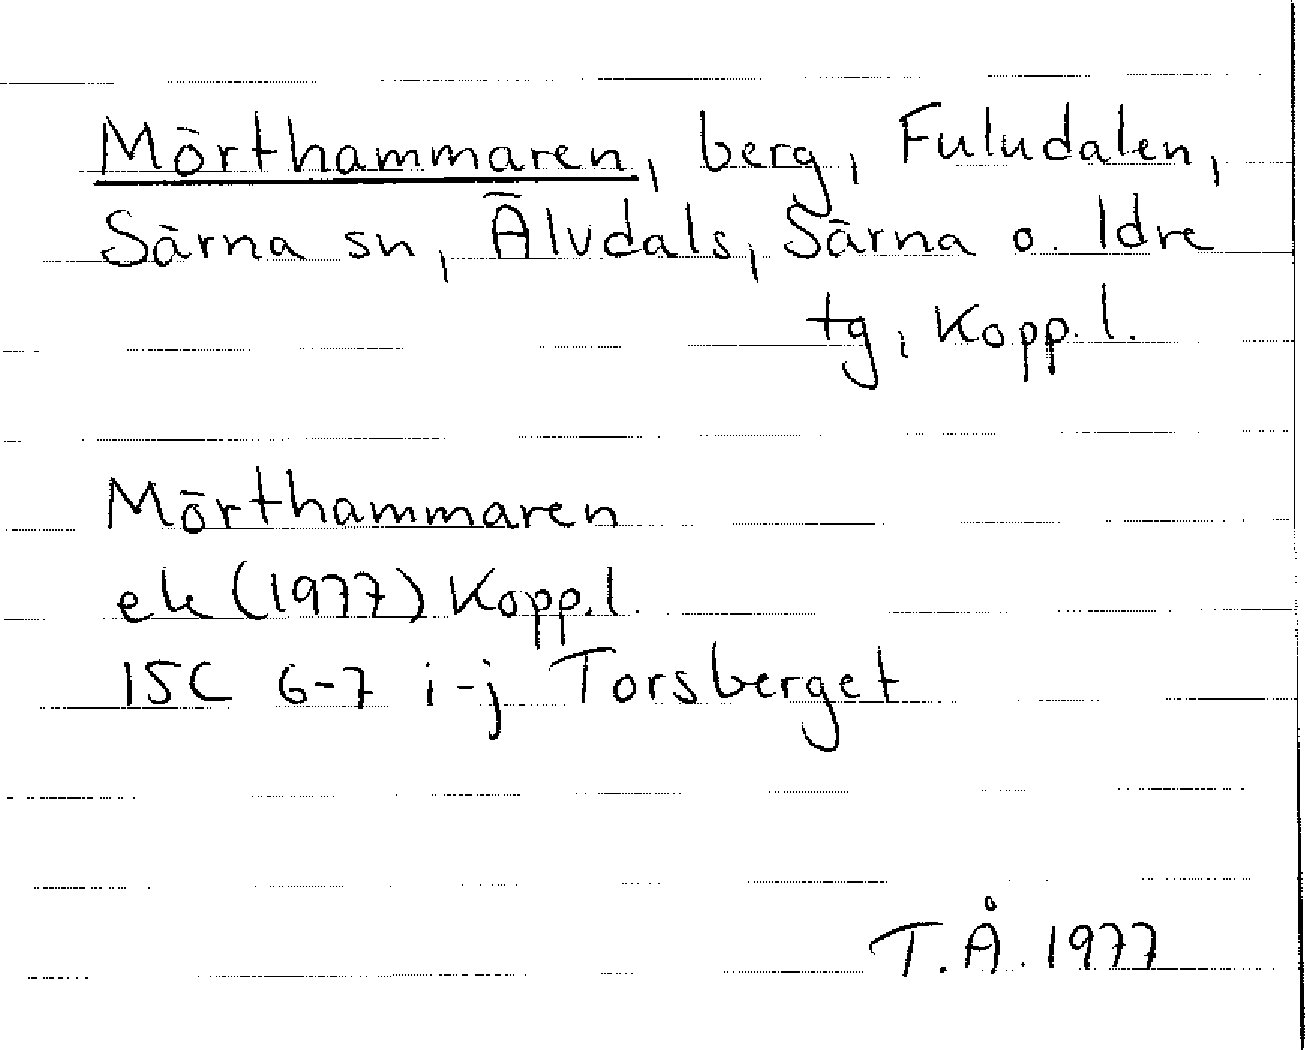 Mörthammaren, berg, Fuludalen,
Särna sn, Älvdals, Särna o. Idre
tg, Kopp. l.
Mörthammaren
ek (1977) Kopp. l.
15C 6-7 i-j Torsberget
T.Å. 1977